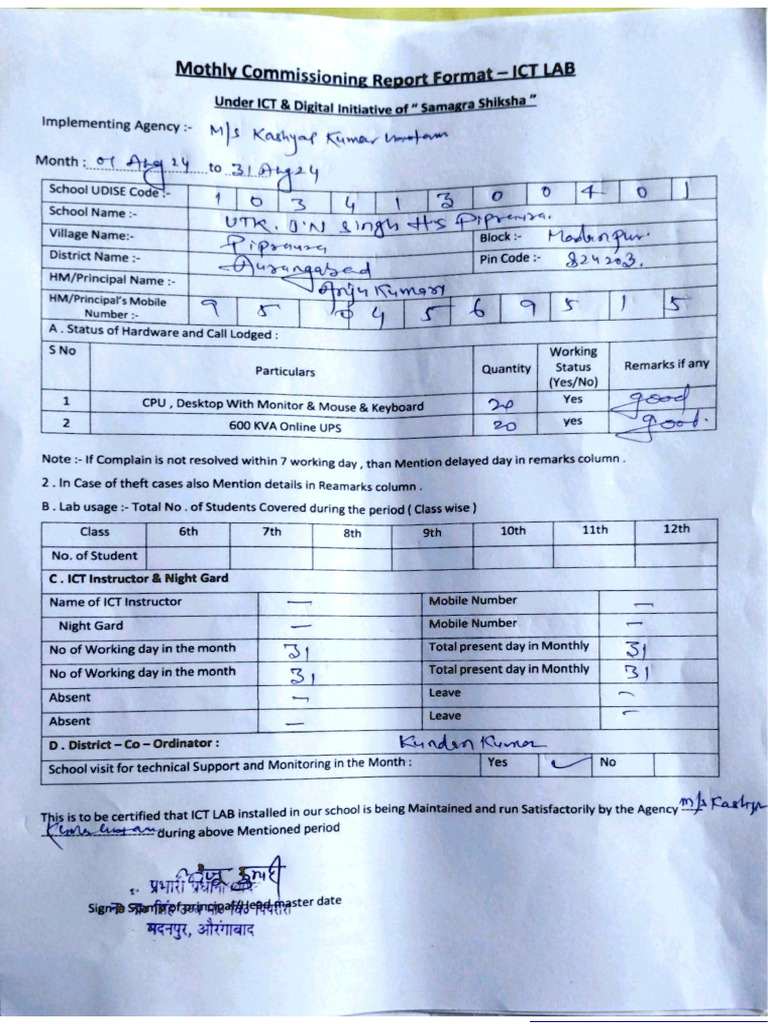 Mothly Commissioning Report Format – ICT LAB
Under ICT & Digital Initiative of “ Samagra Shiksha ”
Implementing Agency :- M/s Kashyap Kumar
Month : 01 Aug 24 to 31 Aug 24
School UDISE Code :- 1 0 3 4 1 3 0 0 4 0 1
School Name :- UTK. S.N Singh H.S Piprawra.
Village Name:- Piprawra Block :- Madanpur.
District Name :- Aurangabad Pin Code :- 824203.
HM/Principal Name :- Anju Kumari
HM/Principal's Mobile
Number :- 9 5 0 4 5 6 9 5 1 5
A . Status of Hardware and Call Lodged :
S No Particulars Quantity Working Status (Yes/No) Remarks if any
1 CPU , Desktop With Monitor & Mouse & Keyboard 20 Yes good
2 600 KVA Online UPS 20 yes good.
Note :- If Complain is not resolved within 7 working day , than Mention delayed day in remarks column .
2 . In Case of theft cases also Mention details in Reamarks column .
B . Lab usage :- Total No . of Students Covered during the period ( Class wise )
Class 6th 7th 8th 9th 10th 11th 12th
No. of Student
C . ICT Instructor & Night Gard
Name of ICT Instructor — Mobile Number —
Night Gard — Mobile Number —
No of Working day in the month 31 Total present day in Monthly 31
No of Working day in the month 31 Total present day in Monthly 31
Absent — Leave —
Absent — Leave —
D . District – Co – Ordinator : Kundan Kumar
School visit for technical Support and Monitoring in the Month : Yes ✓ No
This is to be certified that ICT LAB installed in our school is being Maintained and run Satisfactorily by the Agency M/s Kashyap
Kumar during above Mentioned period
अंजू कुमारी
प्रभारी प्रधाना
Sign & Stamp of principal/Head master date
मदनपुर, औरंगाबाद